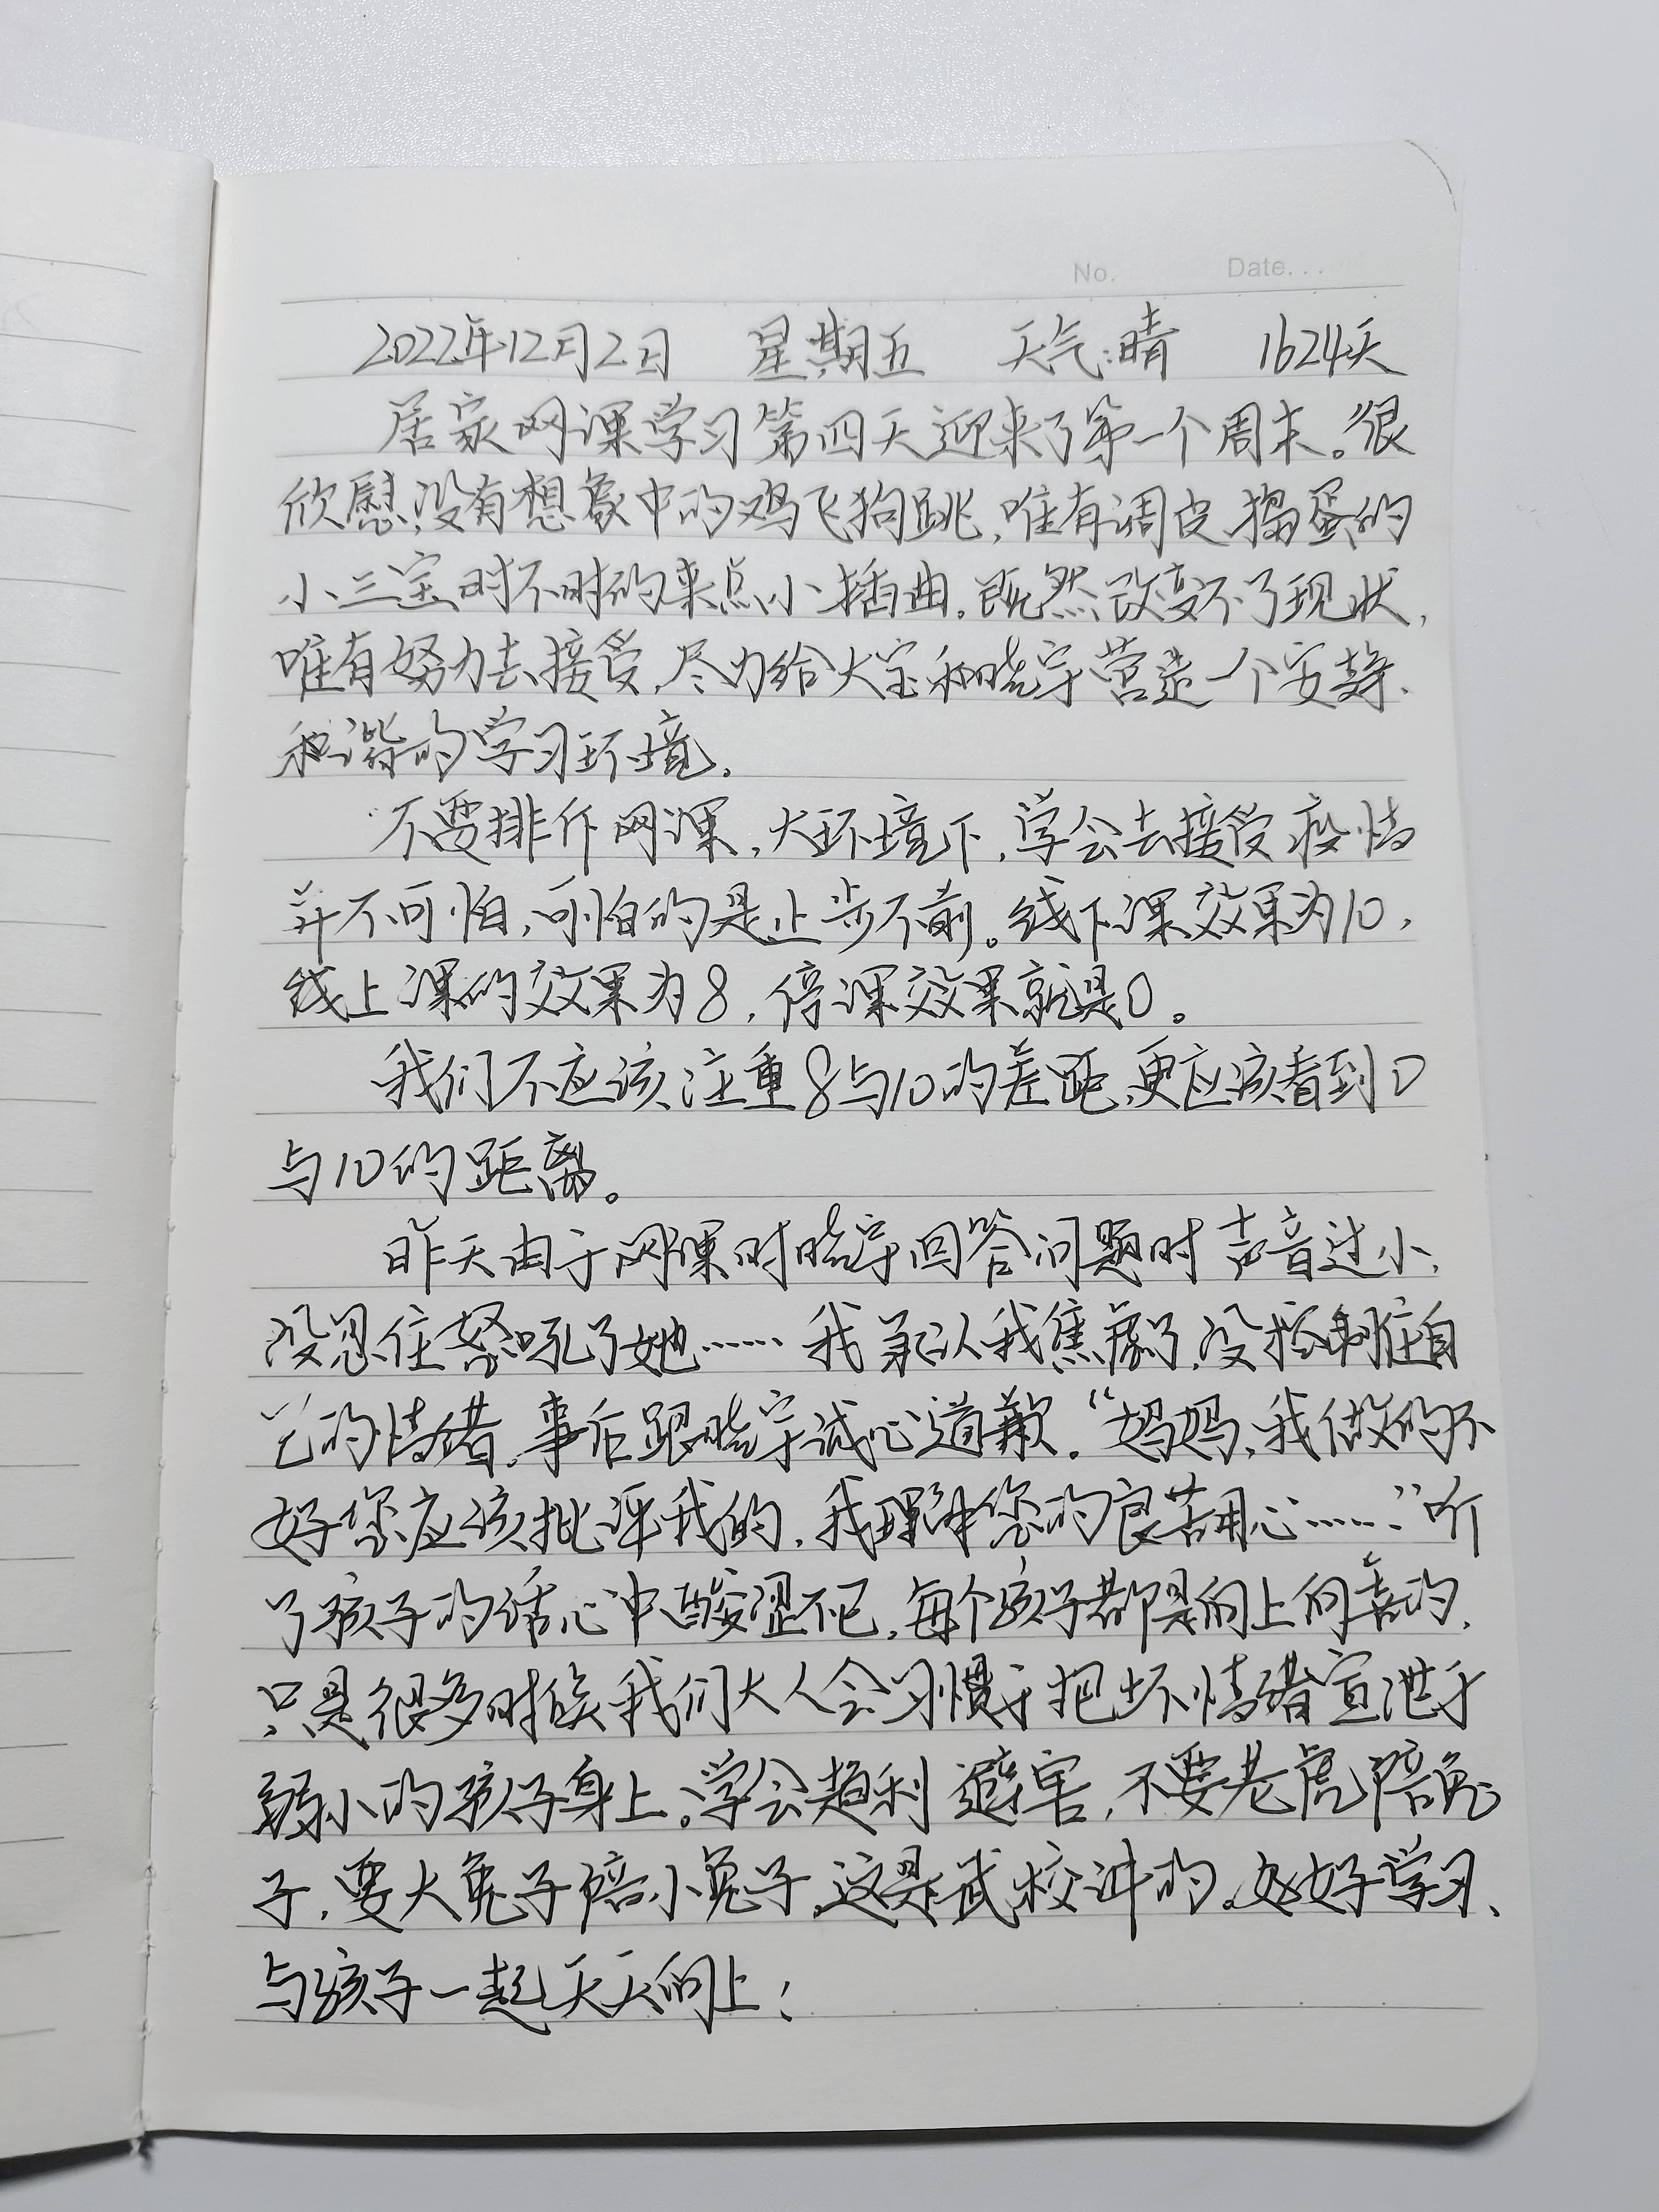 No. Date...
2022年12月2日 星期五 天气:晴 1624天
居家网课学习第四天迎来了第一个周末。很
欣慰,没有想象中的鸡飞狗跳,唯有调皮捣蛋的
小三宝时不时的来点小插曲。既然改变不了现状,
唯有努力去接受,尽力给大宝和晓宇营造一个安静、
和谐的学习环境。
不要排斥网课,大环境下,学会去接受疫情
并不可怕,可怕的是止步不前。线下课效果为10,
线上课的效果为8,停课效果就是0。
我们不应该注重8与10的差距,更应该看到0
与10的距离。
昨天由于网课时晓宇回答问题时声音过小,
没忍住怒吼了她…… 我承认我焦虑了,没控制住自
己的情绪,事后跟晓宇诚心道歉。“妈妈,我做的不
好您应该批评我的,我理解您的良苦用心……”听
了孩子的话心中酸涩不已,每个孩子都是向上向善的,
只是很多时候我们大人会习惯于把坏情绪宣泄于
弱小的孩子身上。学会趋利避害,不要老虎陪兔
子,要大兔子陪小兔子,这是武校讲的。好好学习、
与孩子一起天天向上!